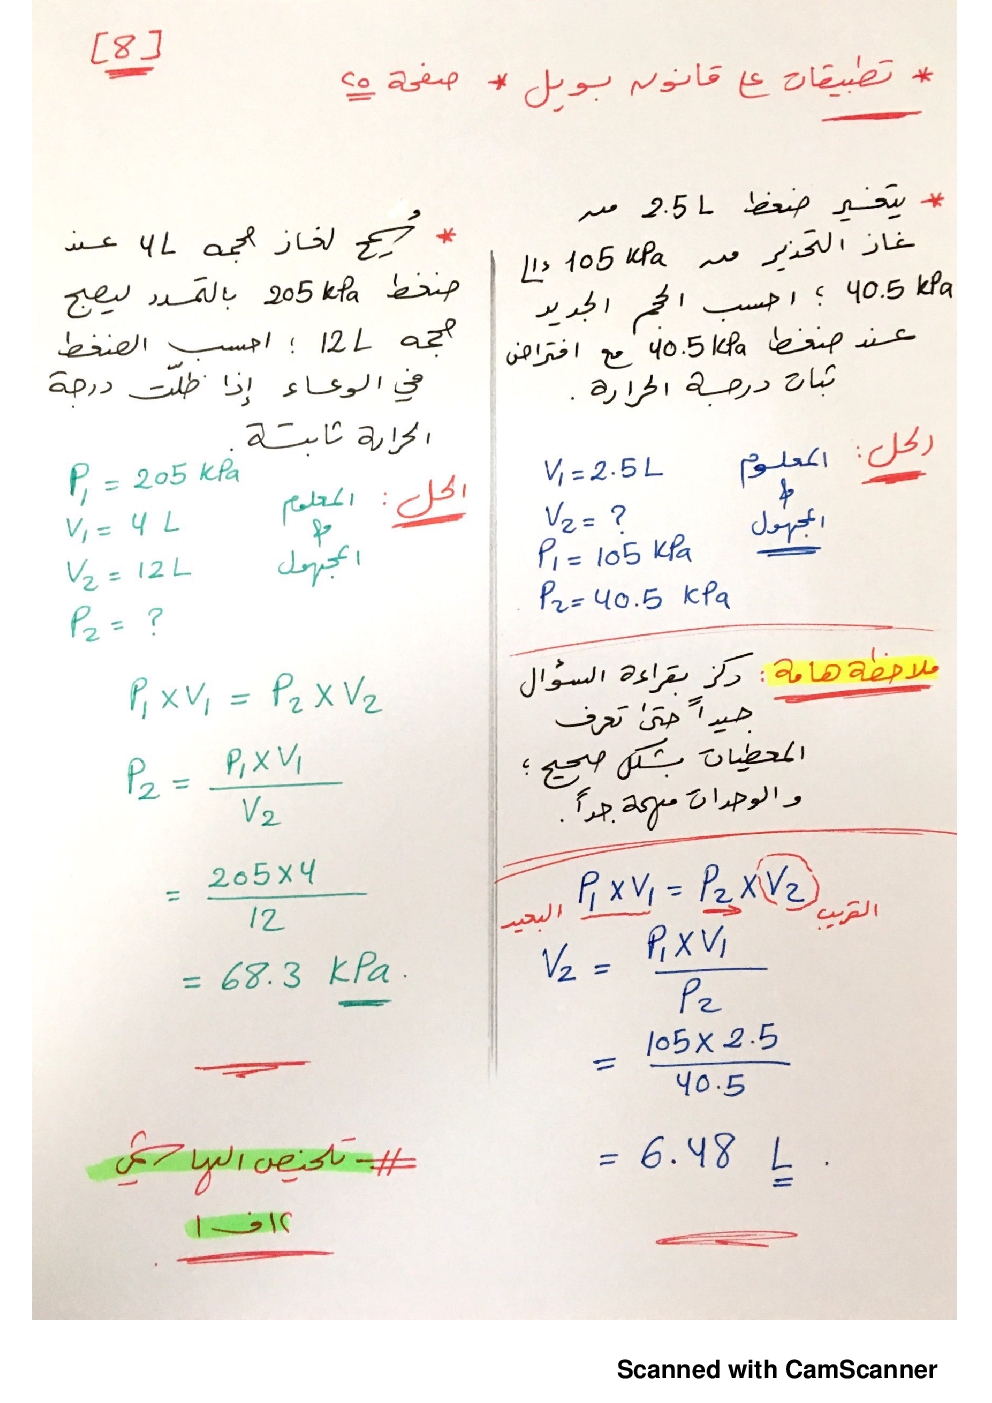 [8]
* تطبيقات ع قانون بويل * صفحة ٢٥
* يتغير ضغط 2.5 L من
غاز التخدير من 105 kPa إلى
40.5 kPa ؛ احسب الحجم الجديد
عند ضغط 40.5 kPa مع افتراض
ثبات درجة الحرارة .
الحل :
المعلوم
&
المجهول
V₁ = 2.5 L
V₂ = ?
P₁ = 105 kPa
P₂ = 40.5 kPa
ملاحظة هامة : ركز بقراءة السؤال
جيداً حتى تعرف
المعطيات بشكل صحيح ؛
و الوحدات مهمة جداً .
P₁ × V₁ = P₂ × V₂
البعيد
القريب
V₂ = P₁ × V₁
P₂
= 105 × 2.5
40.5
= 6.48 L .
* سُمح لغاز حجمه 4 L عند
ضغط 205 kPa بالتمدد ليصبح
حجمه 12 L ؛ احسب الضغط
في الوعاء إذا ظلّت درجة
الحرارة ثابتة .
الحل :
المعلوم
&
المجهول
P₁ = 205 kPa
V₁ = 4 L
V₂ = 12 L
P₂ = ?
P₁ × V₁ = P₂ × V₂
P₂ = P₁ × V₁
V₂
= 205 × 4
12
= 68.3 kPa .
# تلخيص
١٢ ف ١
Scanned with CamScanner